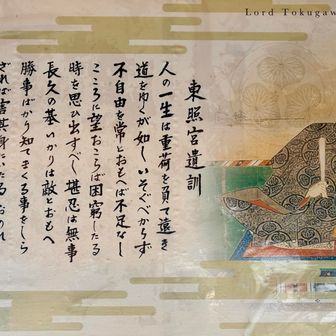 Lord Tokugaw
東照宮遺訓
人の一生は重荷を負て遠き
道をゆくが如しいそぐべからず
不自由を常とおもへば不足なし
こころに望おこらば困窮したる
時を思ひ出すべし堪忍は無事
長久の基いかりは敵とおもへ
勝事ばかり知てまくる事をしら
ざれば害其身にいたるおのれ